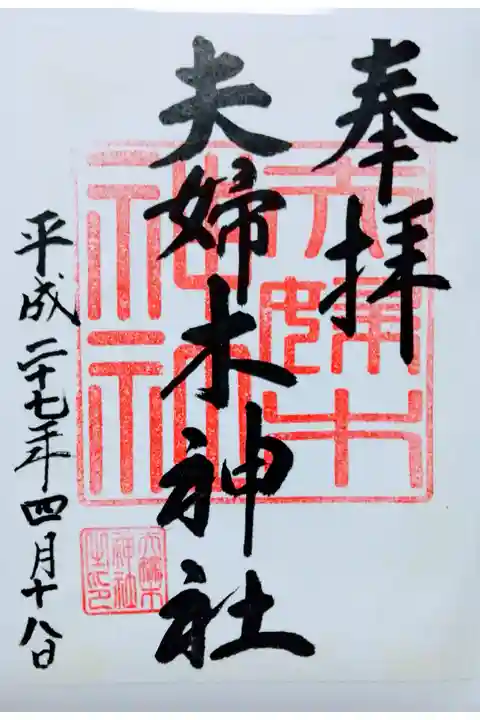 奉拝
夫婦木神社
平成二十七年四月十八日